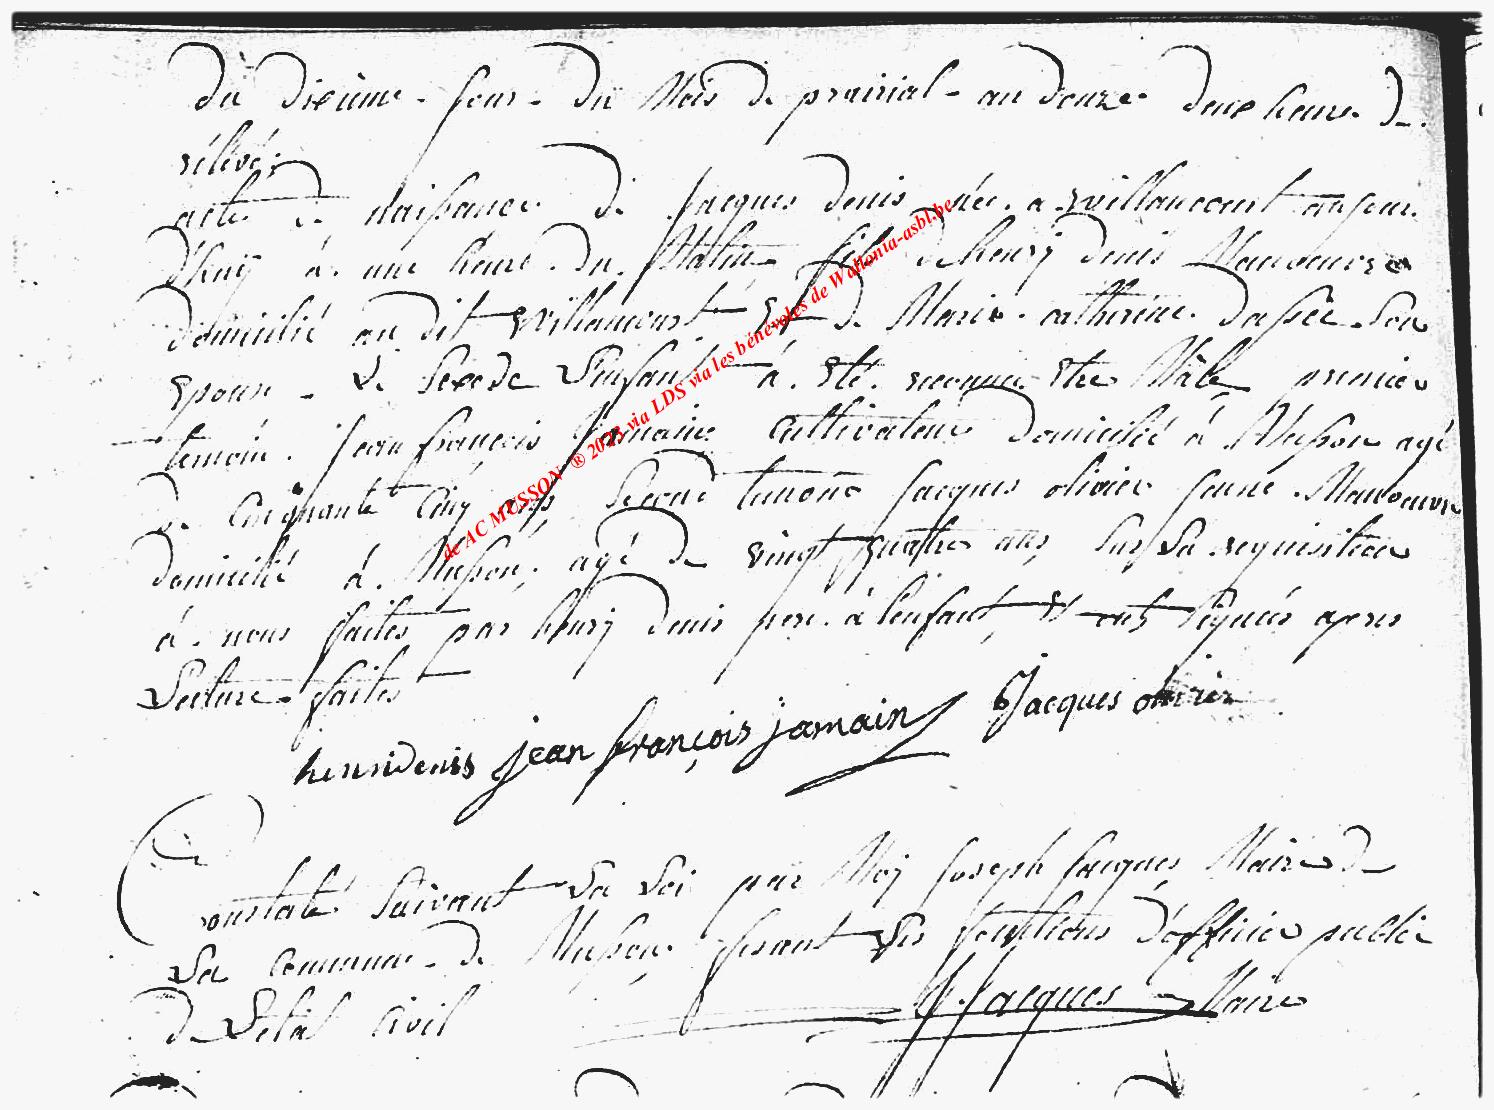 du dixieme jour du Mois de prairial an douze deux heure de
rélevé
acte de naissance de Jacques denis née a willancourt aujour
d'huy à une heure du Matin fils de henry denis Manoeuvre
domicilié au dit willancourt Et de Marie catherine dassée Son
Epouse Le Sexe de L'enfant à Eté reconnu Etre Mâle premier
temoin jean françois jamain Cultivateur domicilié à Musson agé
de Cinquante Cinq ans Second temoins jacques olivier jeune Manoeuvre
domicilié à Musson agé de vingt quattre ans Sur La requisition
à nous faites par henry denis pere à l'enfant Et ont signés apres
Lecture faites
henri denis jean françois jamain Jacques olivier
Constaté Suivant La Loi par Moy joseph jacques Maire de
La Commune de Musson fesant Les fonctions d'officier public
de L'etat Civil
J Jacques Maire
de AC MUSSON ® 2023 via LDS via les bénévoles de Wallonia-asbl.be